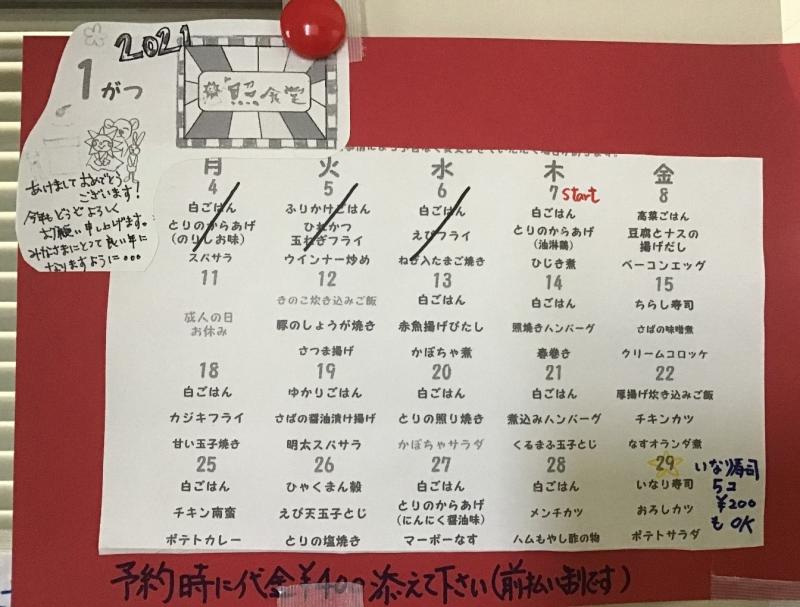 2021
1がつ
照食堂
あけましておめでとう
ございます!
今年もどうぞよろしく
お願い申し上げます。
みなさまにとって良い年に
なりますように...
月 火 水 木 金
4 5 6 7 start 8
白ごはん ふりかけごはん 白ごはん 白ごはん 高菜ごはん
とりのからあげ ひれかつ えびフライ とりのからあげ 豆腐とナスの
(のりしお味) 玉ねぎフライ (油淋鶏) 揚げだし
スパサラ ウインナー炒め ねぎ入たまご焼き ひじき煮 ベーコンエッグ
11 12 13 14 15
成人の日 きのこ炊き込みご飯 白ごはん 白ごはん ちらし寿司
お休み 豚のしょうが焼き 赤魚揚げびたし 照焼きハンバーグ さばの味噌煮
さつま揚げ かぼちゃ煮 春巻き クリームコロッケ
18 19 20 21 22
白ごはん ゆかりごはん 白ごはん 白ごはん 厚揚げ炊き込みご飯
カジキフライ さばの醤油漬け揚げ とりの照り焼き 煮込みハンバーグ チキンカツ
甘い玉子焼き 明太スパサラ かぼちゃサラダ くるまふ玉子とじ なすオランダ煮
25 26 27 28 29
白ごはん ひゃくまん穀 白ごはん 白ごはん いなり寿司
チキン南蛮 えび天玉子とじ とりのからあげ メンチカツ おろしカツ
(にんにく醤油味)
ポテトカレー とりの塩焼き マーボーなす ハムもやし酢の物 ポテトサラダ
いなり寿司
5コ
¥200
も OK
予約時に代金¥400添えて下さい(前払い制です)